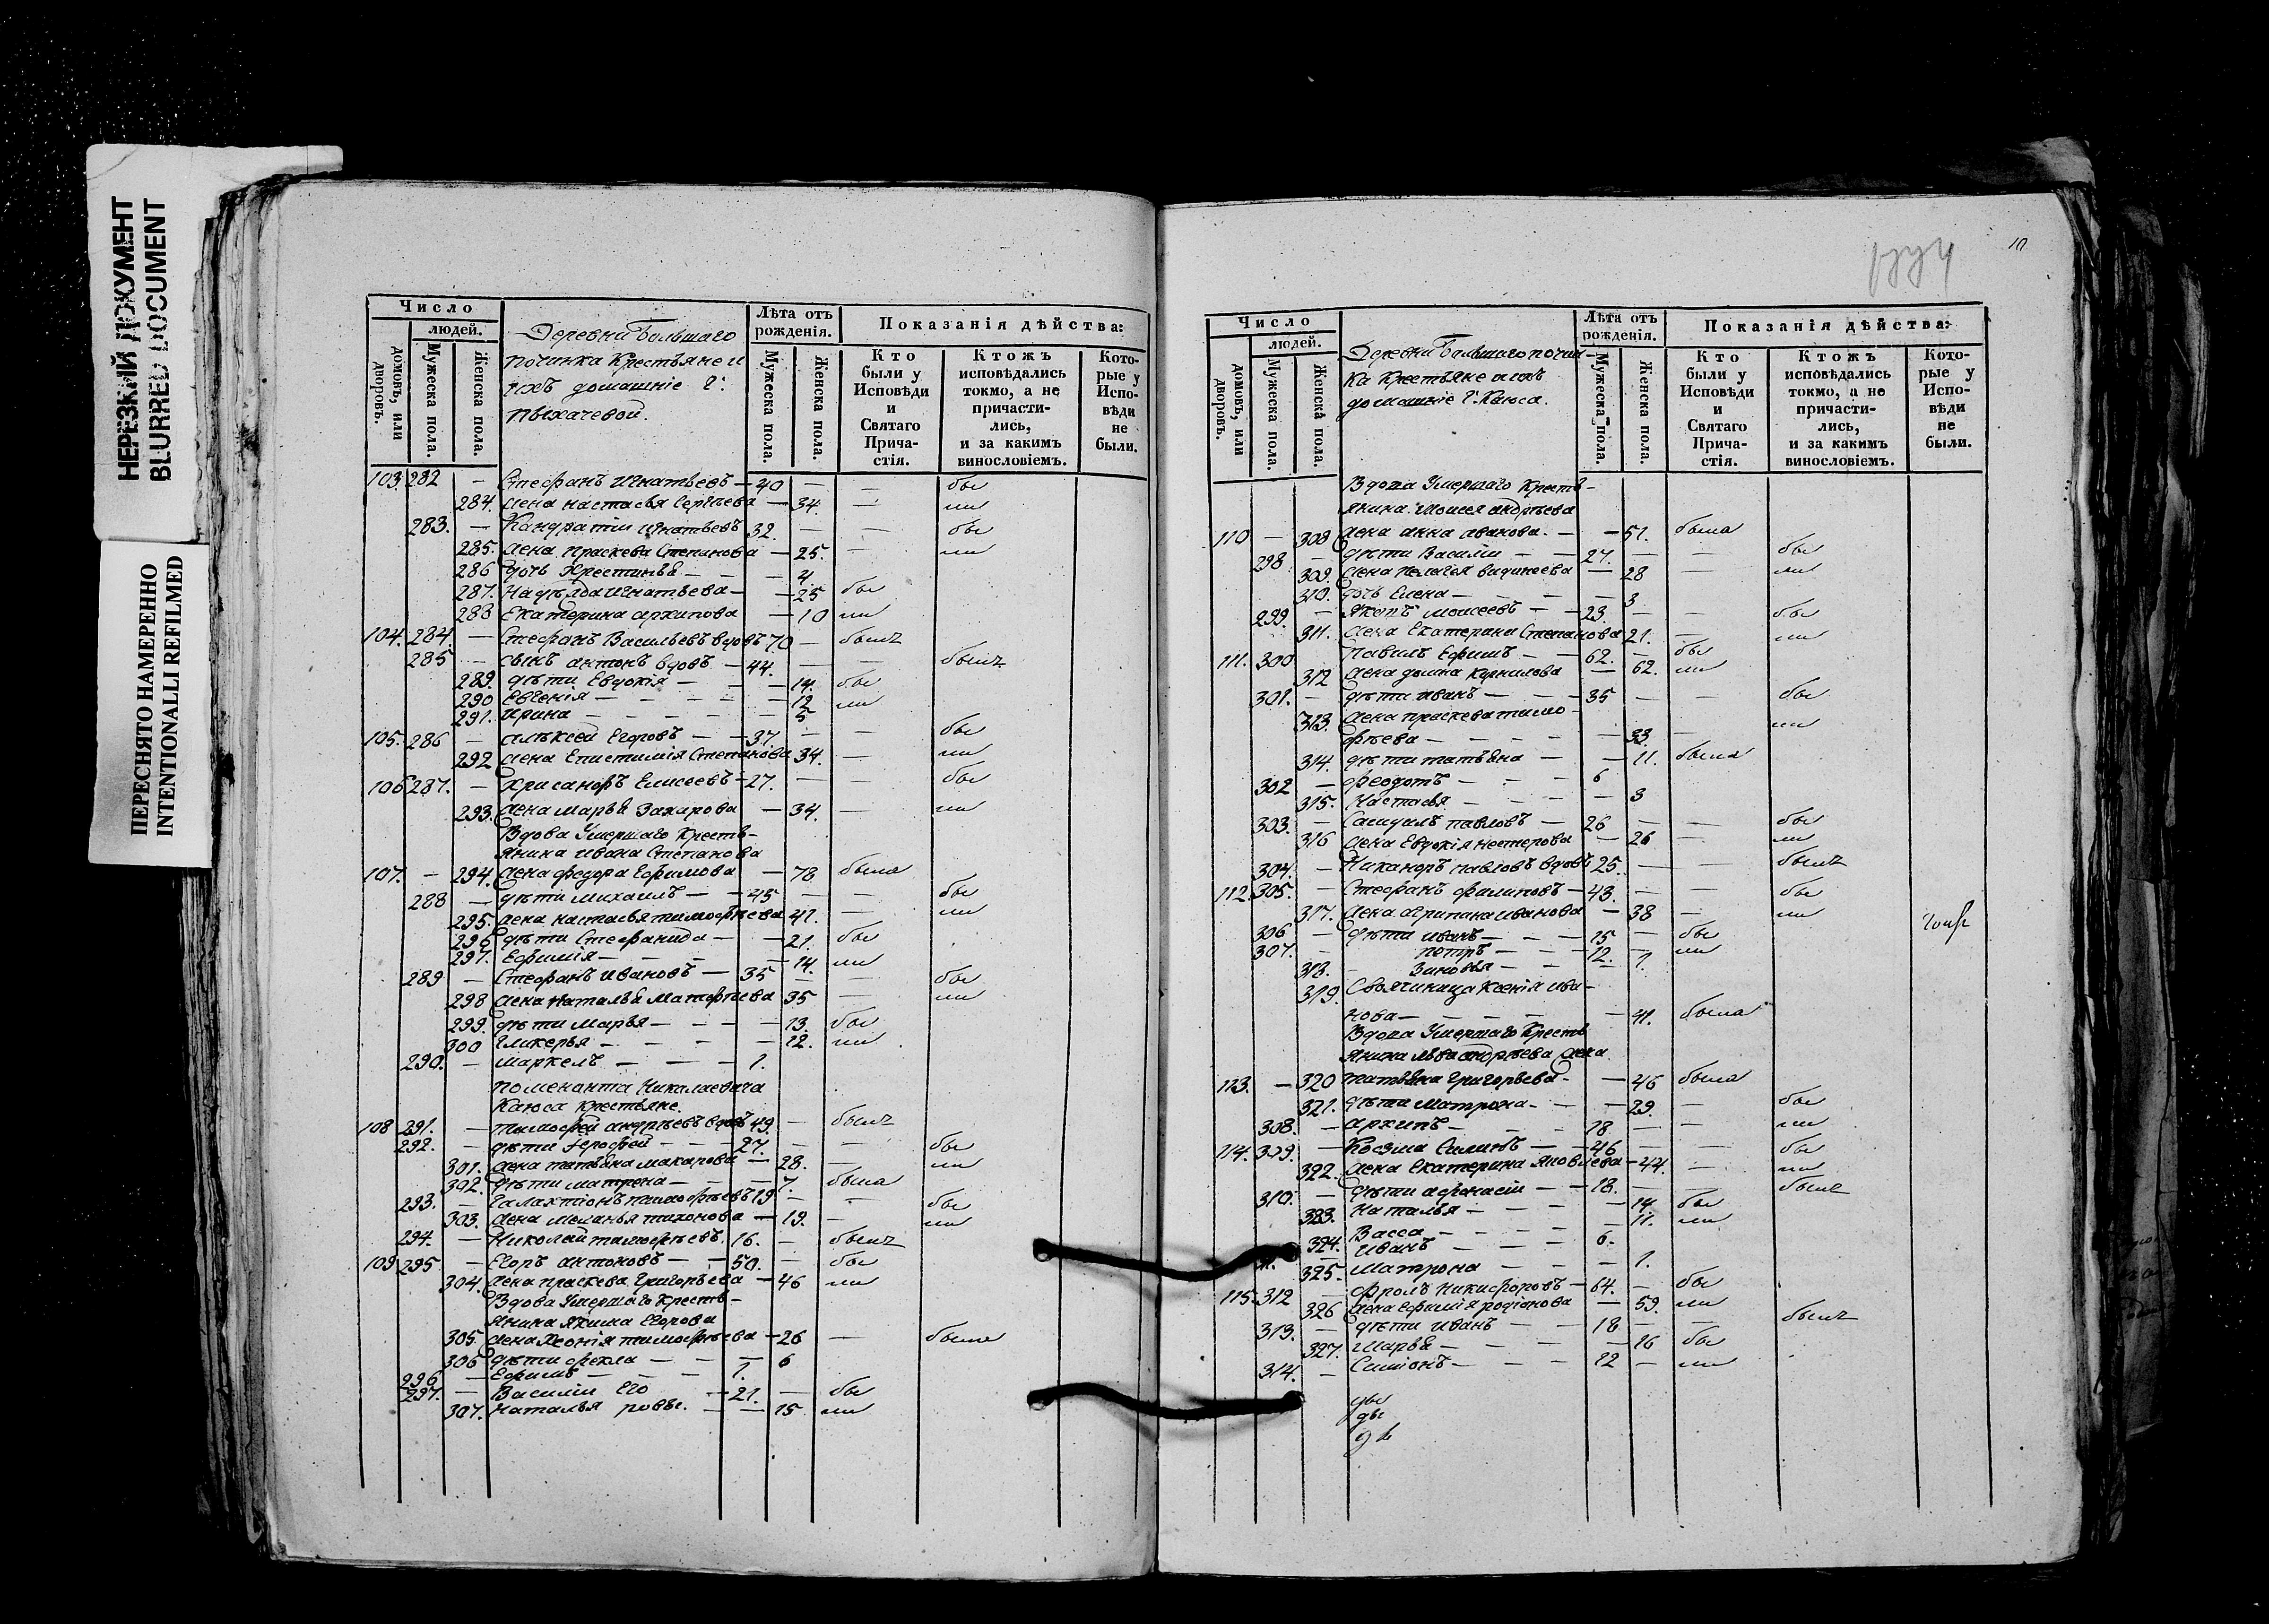 НЕРЕЗКИЙ ДОКУМЕНТ
BLURRED DOCUMENT
ПЕРЕСНЯТО НАМЕРЕННО
INTENTIONALLI REFILMED
Число
людей.
домовъ, или дворовъ.
Мужеска пола.
Женска пола.
Деревни Большаго
починка Крестьяне и
ихъ домашніе Г:
Пыхачевой.
Лѣта отъ рожденія.
Мужеска пола.
Женска пола.
Показанія дѣйства:
Кто были у Исповѣди и Святаго Прича-стія.
Ктожъ исповѣдались токмо, а не причасти-лись, и за какимъ винословіемъ.
Кото-рые у Испо-вѣди не были.
103. 282 — Стефанъ Игнатьевъ — 40 — — бы
284. жена настасья Сергеева — 34. — ли
283. — Кандратіи Игнатьевъ 32. — — бы
285. жена праскева Степанова — 25. — ли
286 дочь Хрестинья — — — 4
287. Надѣжда Игнатьева — — 25 бы
288 Екатерина архипова — 10 ли
104. 284. — Стефанъ Васильевъ вдовъ 70 — былъ
285 — сынъ антонъ вдовъ — 44. — — былъ
289. дѣти Евдокія — — — 14. бы
290 Евгенія — — — — 12 ли
291. Ирина — — — — — 5
105. 286 — алѣксей Егоровъ — — 37. — — бы
292 жена Епистимія Степанова 34. — ли
106 287. — Хрисанфъ Елисеевъ — 27. — — бы
293. жена марья Захарова — 34. — ли
Вдова Умершаго Кресть-
янина ивана Степанова
107. — 294. жена федора Ефимова — 78 была
288 — дѣти михаилъ — — 45 — — бы
295. жена настасья тимофѣева 41. — ли
296 дѣти Стефанида — — 21. бы
297. Ефимія — — — — 14. ли
289 — Стефанъ Ивановъ — 35 — — бы
298 жена наталья Матфѣева 35 — ли
299. дѣти марья — — — — 13. бы
300 гликерья — — — — 12. ли
290. — маркелъ — — — 1.
Николаевича
Каюса крестьяне.
108 291. — тимофей андрѣевъ вдовъ 49. — былъ
292. — дѣти Ерофей — — — 27. — — бы
301. жена татьяна макарова — 28. — ли
302. дѣти матрена — — — 7. была
293. — Галахтіонъ тимофѣевъ 19 — — бы
303. жена меланья тихонова — 19. — ли
294. — Николай тимофѣевъ. 16. — былъ
109 295 — Егоръ антоновъ — — 50. — бы
304. жена праскева Григорьева — 46 ли
Вдова Умершаго Кресть-
янина якима Егорова
305. жена тимофѣева — 26 — была
306 дѣти фекла — — — 6
296 — Ефимъ — — — 1.
297. — Василіи Его — 21. — бы
307. наталья ровы. — — 15 ли
10
Число
людей.
домовъ, или дворовъ.
Мужеска пола.
Женска пола.
Деревни Большаго почин-
ка Крестьяне и ихъ
домашніе Г. Каюса.
Лѣта отъ рожденія.
Мужеска пола.
Женска пола.
Показанія дѣйства:
Кто были у Исповѣди и Святаго Прича-стія.
Ктожъ исповѣдались токмо, а не причасти-лись, и за какимъ винословіемъ.
Кото-рые у Испо-вѣди не были.
Вдова Умершаго Кресть-
янина Моисея андрѣева
110 — 308 жена анна иванова. — — 51. была
298 — дѣти Василіи — — 27. — — бы
309. жена пелагея — 28 — ли
310. дочь Елена — — — — 3
299. — моисеевъ — — 23. — — бы
311. жена Екатерина Степанова 21. — ли
111. 300 павилъ Ефимъ — — 62. — бы
312 жена домна Корнилова — 62. ли
301. — дѣти иванъ — — — 35 — — бы
313. жена праскева тимо- ли
фѣева — — — — — 33. —
314. дѣти татьяна — — 11. была
302 — феодотъ — — — 6
315. настасья — — — — 3
303. — Самуилъ павловъ — 26 — — бы
316 жена Евдокія нестерова — 26 — ли
304. — Никаноръ павловъ вдовъ 25. — — былъ
112. 305. — Стефанъ филиповъ — 43. — — бы
317. жена агрипина иванова — 38 — ли
306 — дѣти иванъ — — — 15 — бы
307. — петръ — — — 12. — ли
318. — Зиновья — — — 1.
319. Своячиница Ксенія ива-
нова — — — — — 41. была
Вдова Умершаго Кресть
янина льва андрѣева жена
113. — 320 татьяна григорьева — — 46 была
321. дѣти матрона — — — 29. — бы
308. — архипъ — — — 18 — — ли
114. 309. — Козма — — 46 — — бы
322. жена Екатерина яковлева — 44. — ли
310. — дѣти афонасіи — — 18. — — былъ
323. Наталья — — — — 14. бы
324. Васса — — — — — 11. ли
Иванъ — — — 6.
325. матрона — — — — 1.
115. 312 — фролъ никифоровъ — 64. — бы
326 жена Ефимія родіонова — 59. ли
313. — дѣти иванъ — — 18 — — былъ
327. марья — — — — 16 бы
314. — Симіонъ — — — 12 — ли